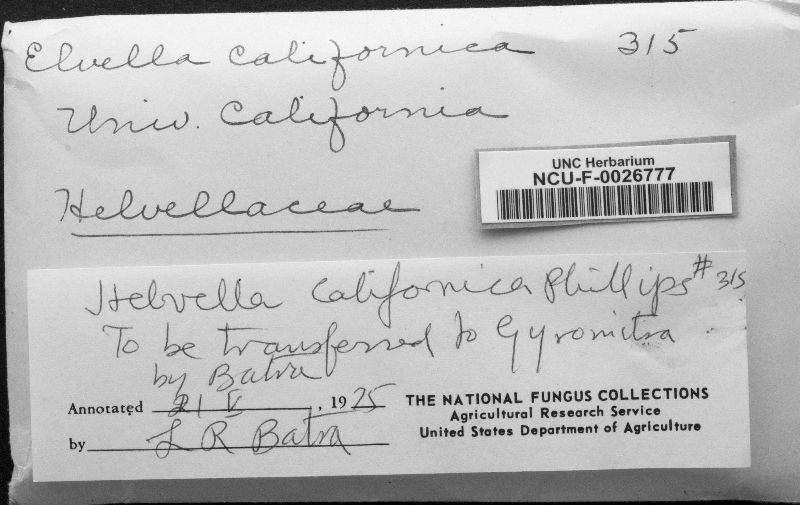 Elvella californica 315
Univ. California
UNC Herbarium
NCU-F-0026777
Helvellaceae
Helvella californica Phillips #315
To be transferred to Gyromitra
by Batra
Annotated 21 V, 1975
by L R Batra
THE NATIONAL FUNGUS COLLECTIONS
Agricultural Research Service
United States Department of Agriculture